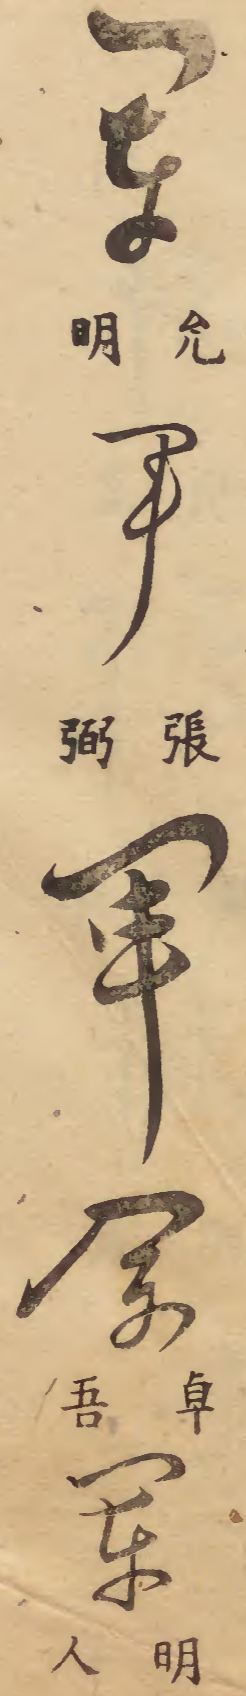 軍
允明
軍
張弼
軍
軍
卓吾
軍
明人